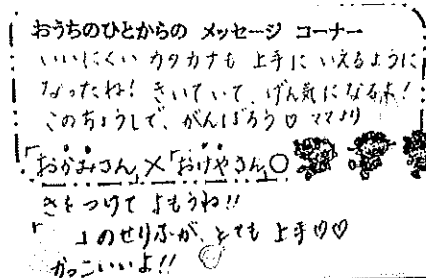 おうちのひとからの メッセージ コーナー
いいにくい カタカナも 上手に いえるように
なったね! きいていて、げん気になるよ!
このちょうしで、がんばろう♡ ママより
「おかみさん」×「おけやさん」○
きをつけて よもうね!!
「 」のせりふが、とても 上手♡♡
かっこいいよ!!